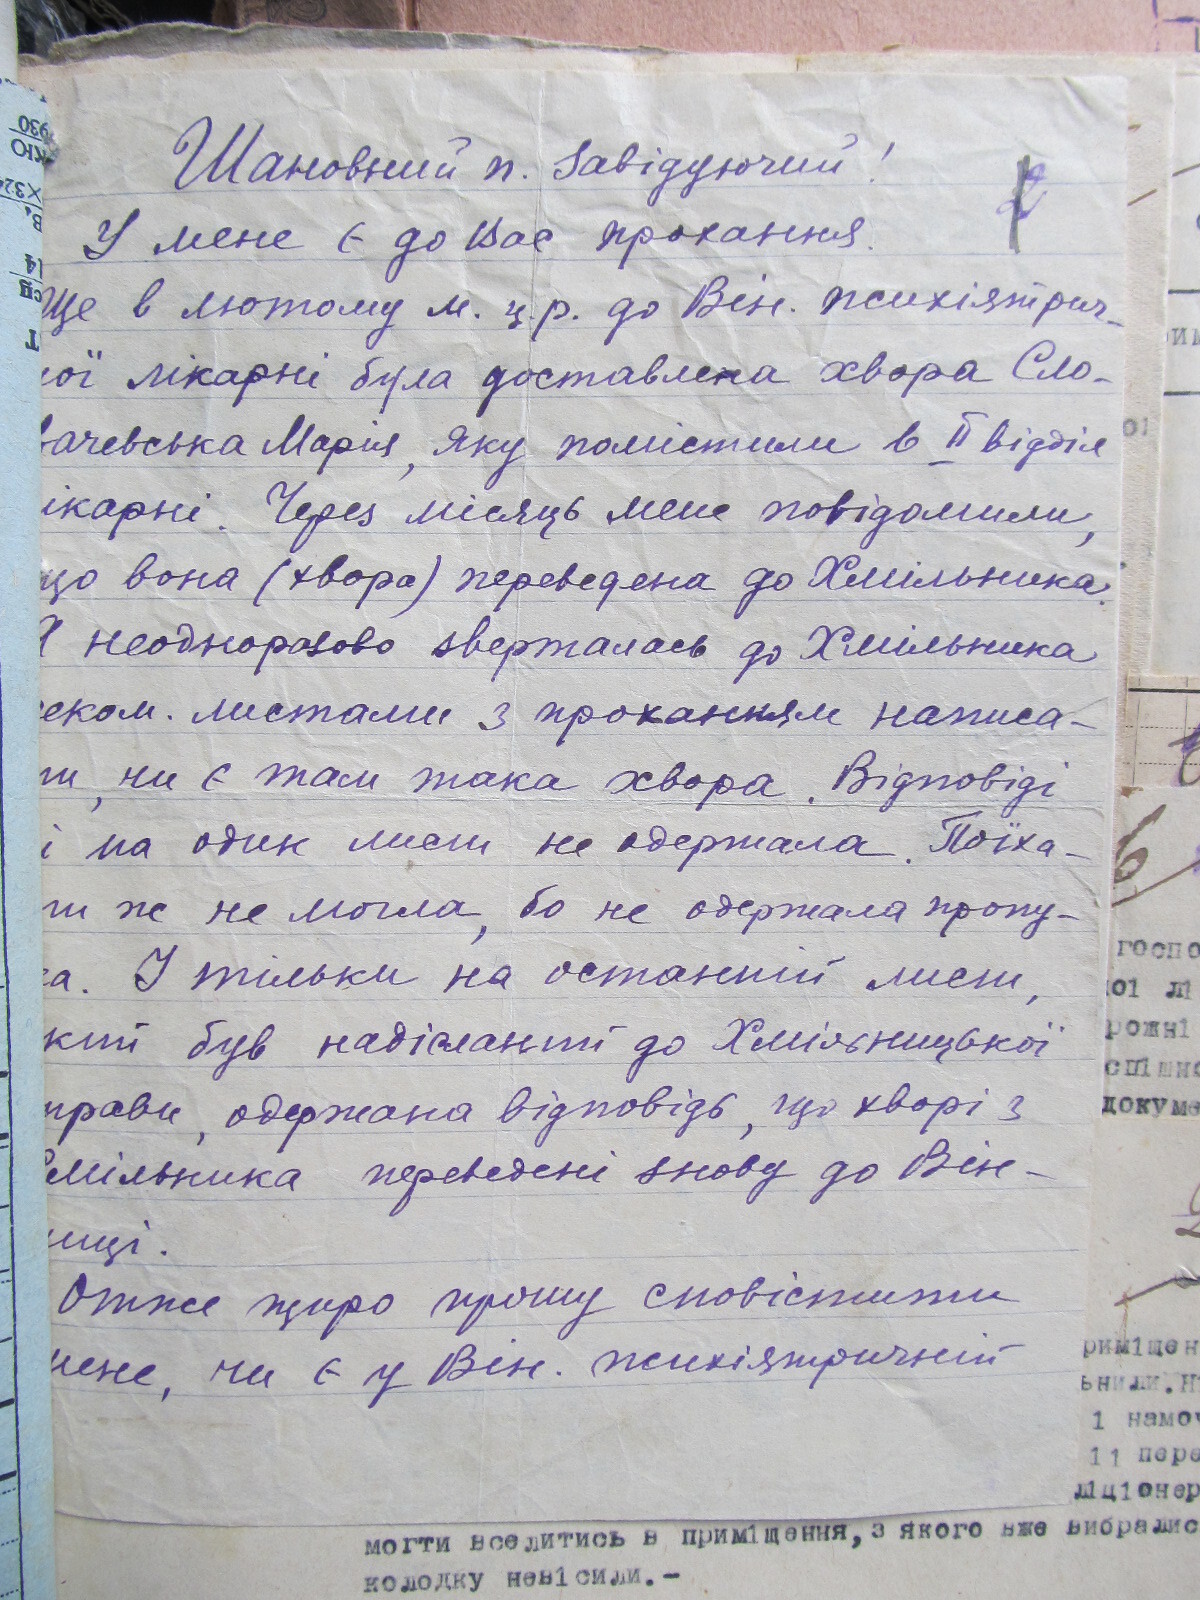 Шановний п. Завідуючий!
У мене є до Вас прохання.
Ще в лютому м. ц.р. до Він. психіятрич-
ої лікарні була доставлена хвора Сло-
вачевська Марія, яку помістили в II відділ
ікарні. Через місяць мене повідомили,
що вона (хвора) переведена до Хмільника.
Я неодноразово зверталась до Хмільника
еком. листами з проханням написа-
ти, чи є там така хвора. Відповіді
і на один лист не одержала. Поїха-
ти ж не могла, бо не одержала пропу-
ка. І тільки на останній лист,
кий був надісланий до Хмільницької
прави, одержана відповідь, що хворі з
Хмільника переведені знову до Він-
ниці.
Отже щиро прошу сповістити
мене, чи є у Він. психіятричній
госпо
ої лі
рожні
спішно
докуме
риміщен
ьнили. Ні
1 намоч
11 пере
ліціонер
могти вселитись в приміщення, з якого вже вибралис
колодку невісили.-